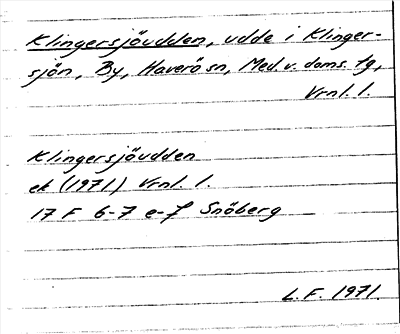 Klingersjöudden, udde i Klinger-
sjön, By, Haverö sn, Med. v. doms. tg,
Vrnl. l.
Klingersjöudden
ek (1971) Vrnl. l.
17 F 6-7 e-f Snöberg
L.F. 1971.